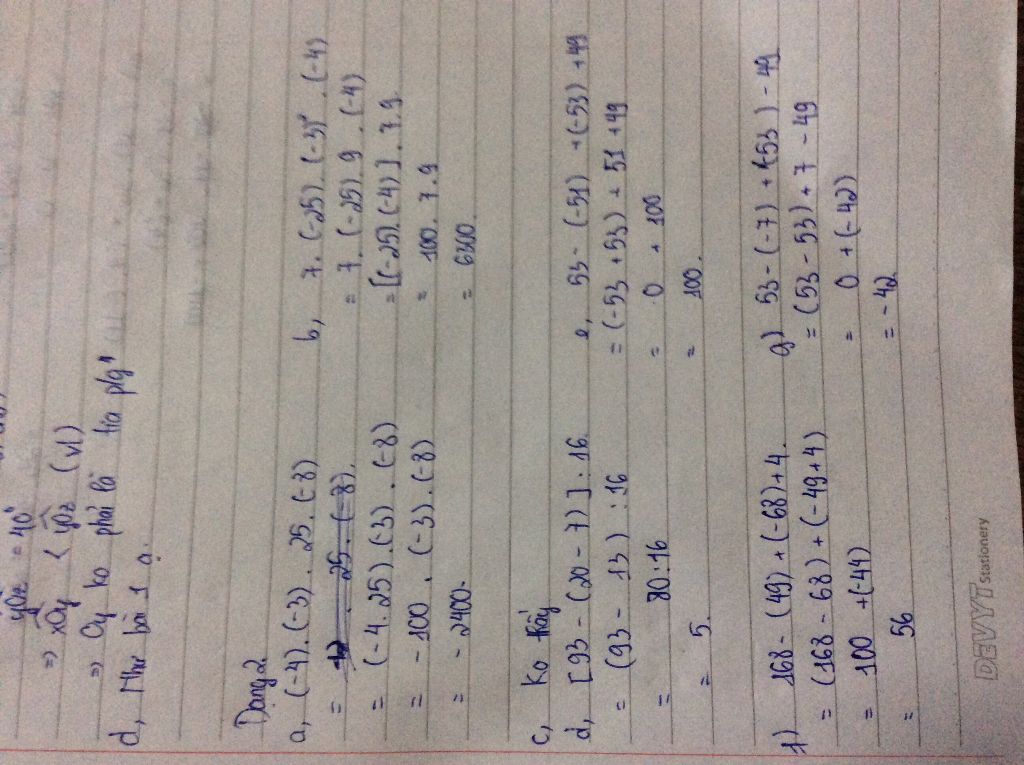 yOz = 40°
=> xOy < yOz (vl)
=> Oy ko phải là tia p/g
d, Như bài 1 a.
Dạng 2
a, (-4).(-3).25.(-8)
= 25.(-8).
= (-4.25).(-3).(-8)
= -100.(-3).(-8)
= -2400.
b, 7.(-25).(-3)².(-4)
= 7.(-25).9.(-4)
= [(-25).(-4)].7.9
= 100.7.9
= 6300.
c, Ko thấy
d, [93-(20-7)]:16.
= (93-13):16
= 80:16
= 5.
e, 53-(-51)+(-53)+49
= (-53+53)+51+49
= 0+100
= 100.
f) 168-(49)+(-68)+4.
= (168-68)+(-49+4)
= 100+(-44)
= 56
g) 53-(-7)+(-53)-49
= (53-53)+7-49
= 0+(-42)
= -42
DEVYT Stationery